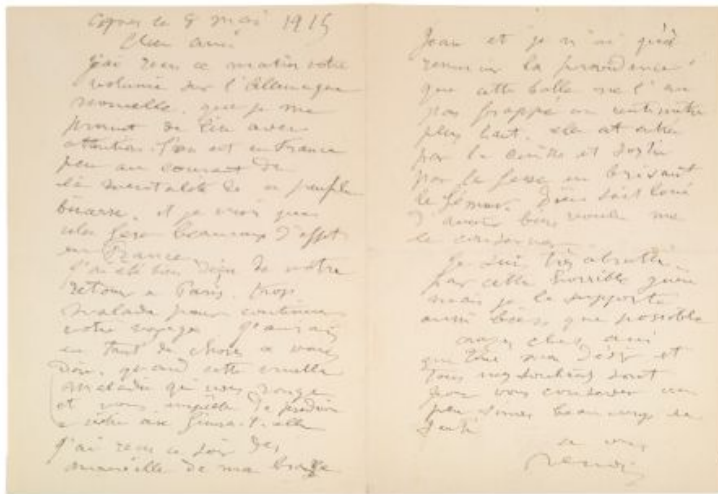 Cagnes le 8 mai 1915
Cher ami
J'ai reçu ce matin votre
volume sur l'Allemagne
nouvelle, que je me
promet de lire avec
attention. l'on est en France
peu au courant de
la mentalité de ce peuple
bizarre, et je crois que
cela fera beaucoup d'effet
en France
J'ai été bien déçu de votre
retour a Paris. trop
malade pour continuer
votre voyage j'aurais
eu tant de choses a vous
dire, quand cette cruelle
maladie qui vous ronge
et vous empêche de
a votre
J'ai reçu ce soir des
nouvelles de ma
Jean et je n'ai qu'à
remercier la providence
que cette balle ne l'ai
pas frappé un centimètre
plus haut. elle est entrée
par la cuisse et sortie
par la fesse en brisant
le fémur. Dieu soit loué
d'avoir bien voulu me
le conserver.
Je suis très
par cette horrible guerre
mais je la supporte
aussi bien que possible
croyez cher ami
que tout mon désir et
tous mes souhaits sont
pour vous conserver un
peu sinon beaucoup de
santé
a vous
Renoir